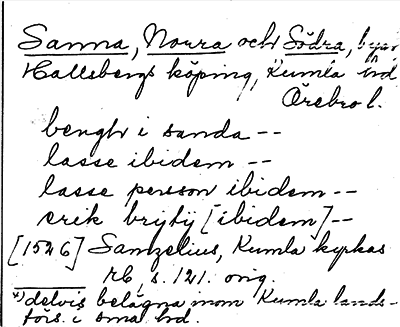 Sanna, Norra och Södra, byar
Hallsbergs köping, Kumla hd
Örebro l.
bengt i sanda --
lasse ibidem --
lasse person ibidem --
erik brytij [ibidem] --
[1526] Samzelius, Kumla kyrkas
rb, s. 121. orig.
*) delvis belägna inom Kumla lands-
förs. i sma hd.